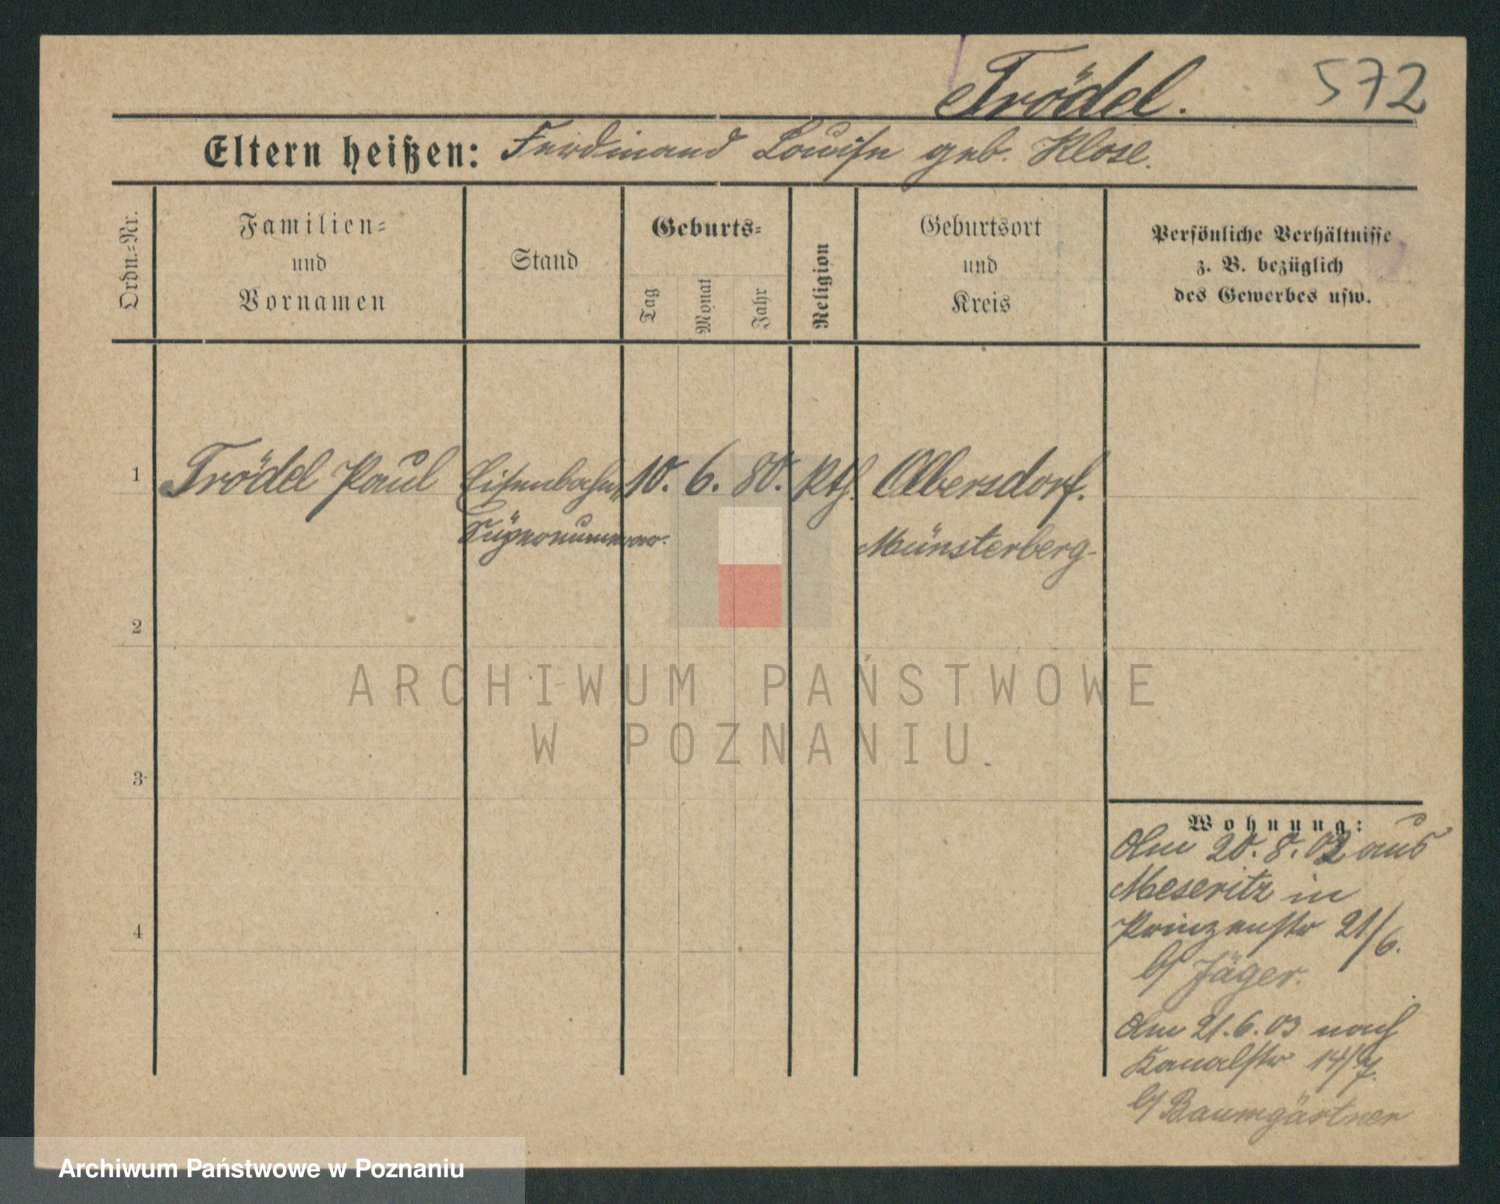 Trödel. 572
Eltern heißen: Ferdinand Louise geb. Klose.
Ordn.-Nr.
Familien-
und
Vornamen
Stand
Geburts-
Tag
Monat
Jahr
Religion
Geburtsort
und
Kreis
Persönliche Verhältnisse
z. B. bezüglich
des Gewerbes usw.
1 Trödel Paul Eisenbahn 10. 6. 80. Kth. Olbersdorf.
Supernumerar. Münsterberg
2
3
4
Wohnung:
Am 20. 8. 02 aus
Meseritz in
Prinzenstr 21/6.
b/ Jäger.
Am 21. 6. 03 nach
Kanalstr 14/7.
b/ Baumgärtner
ARCHIWUM PAŃSTWOWE
W POZNANIU
Archiwum Państwowe w Poznaniu